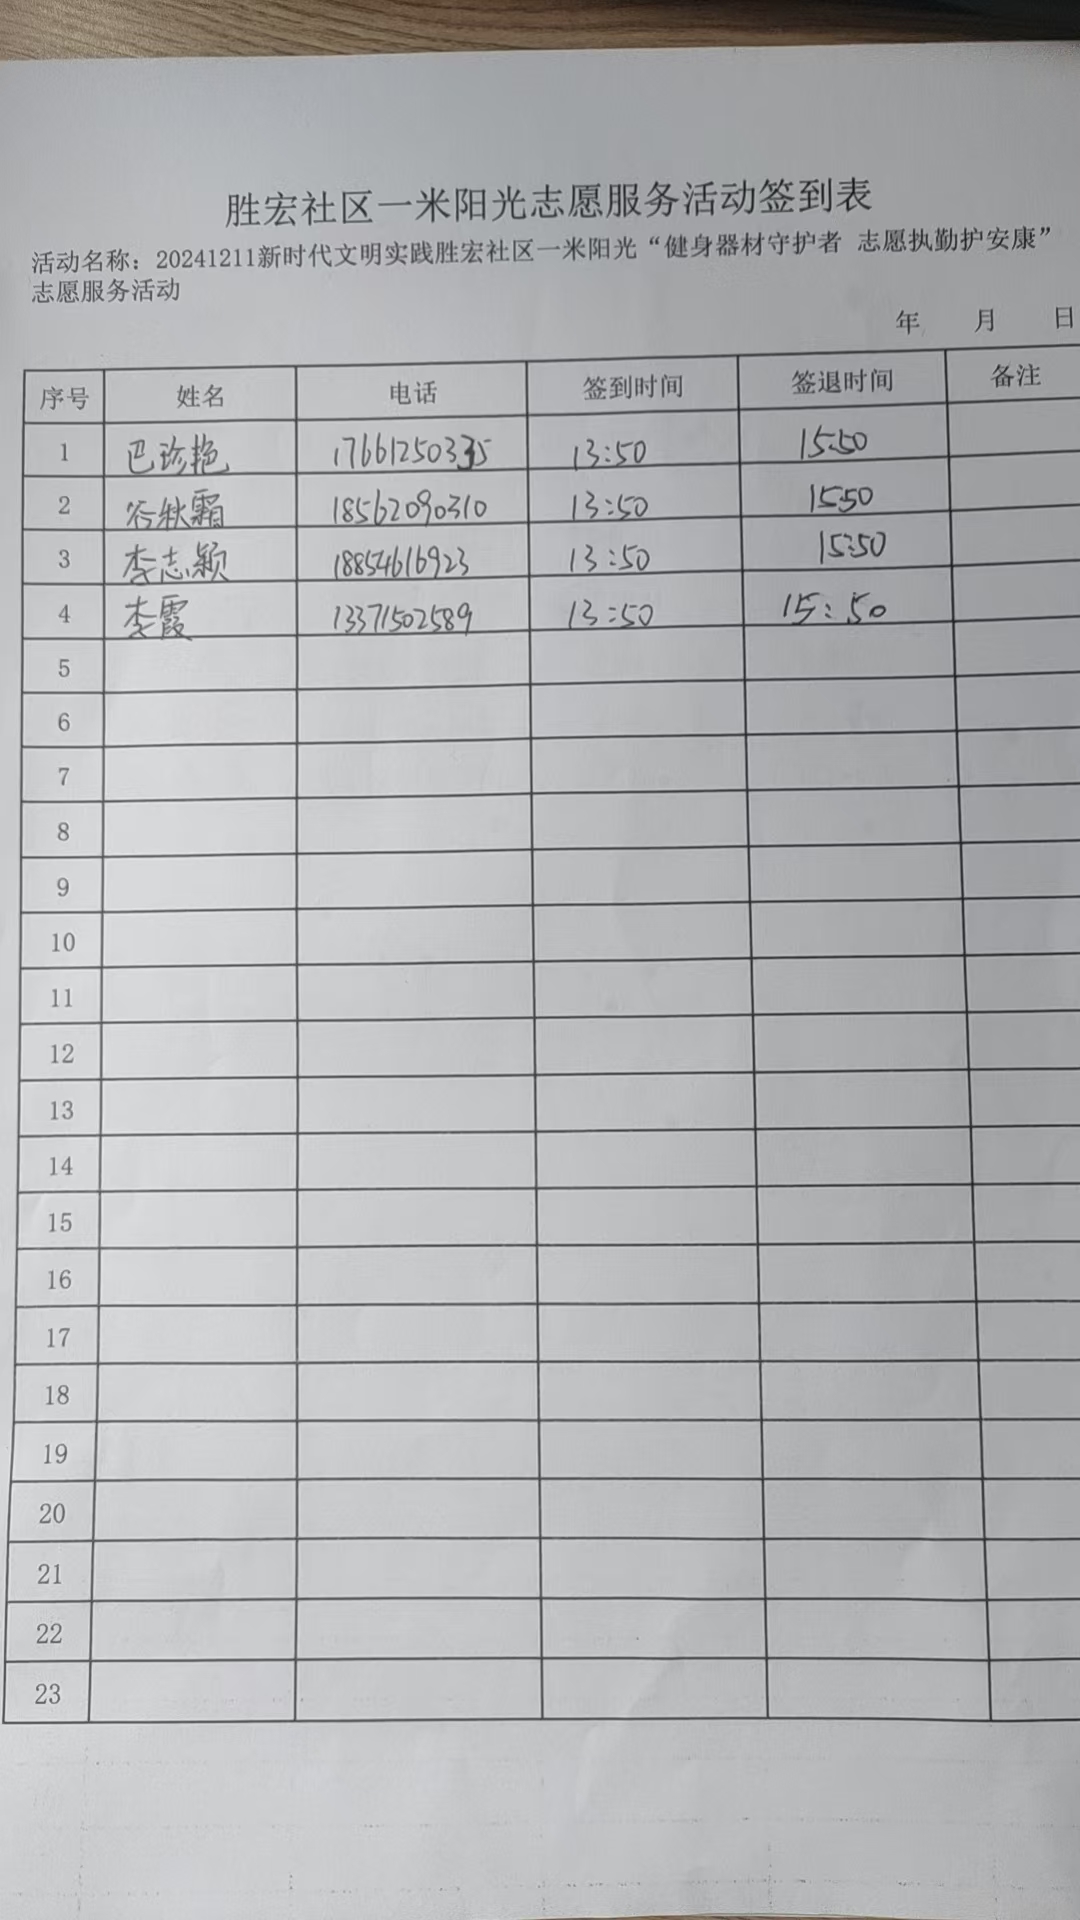 胜宏社区一米阳光志愿服务活动签到表
活动名称：20241211新时代文明实践胜宏社区一米阳光“健身器材守护者 志愿执勤护安康”
志愿服务活动
年 月 日
序号 姓名 电话 签到时间 签退时间 备注
1 巴珍艳 17661250335 13:50 15:50
2 谷秋霜 18562090310 13:50 15:50
3 李志颖 18854616923 13:50 15:50
4 李霞 13371502589 13:50 15:50
5
6
7
8
9
10
11
12
13
14
15
16
17
18
19
20
21
22
23